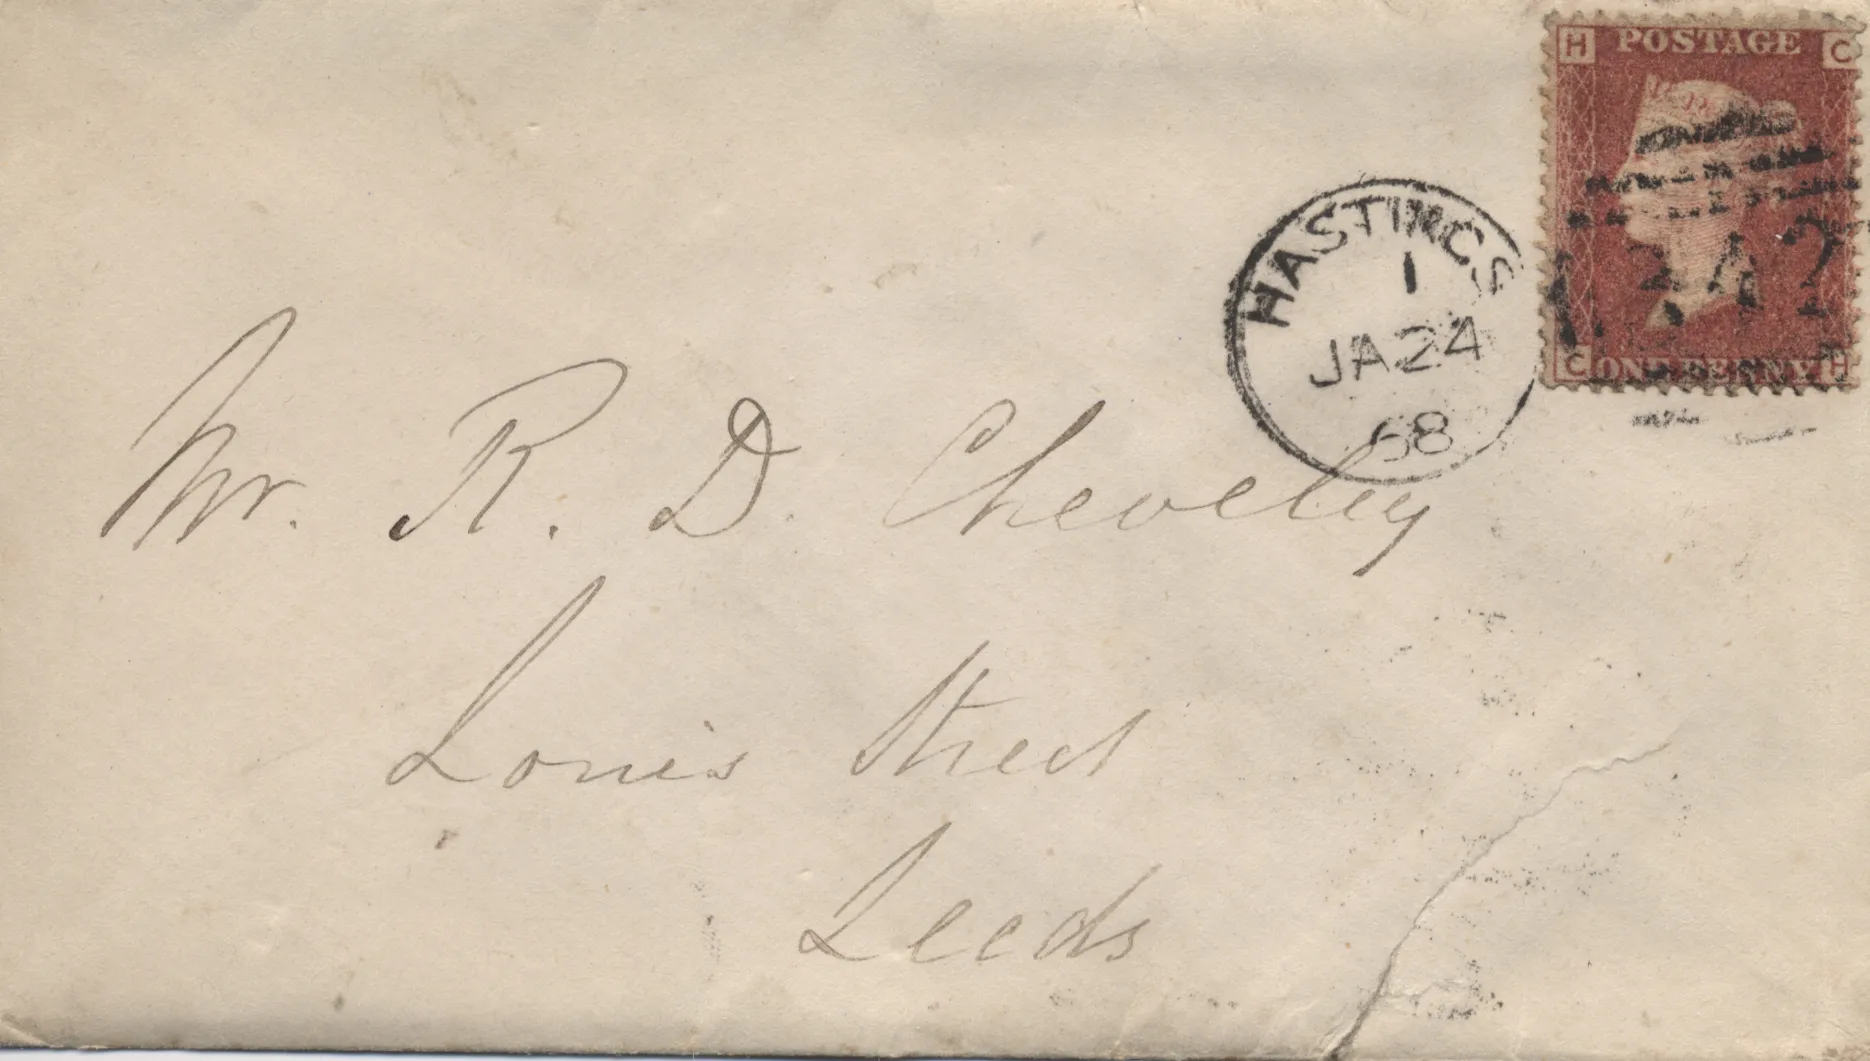 H POSTAGE C
HASTINGS
1
JA 24
68
342
C ONE PENNY H
Mr. R. D. Cheveley
Louis Street
Leeds